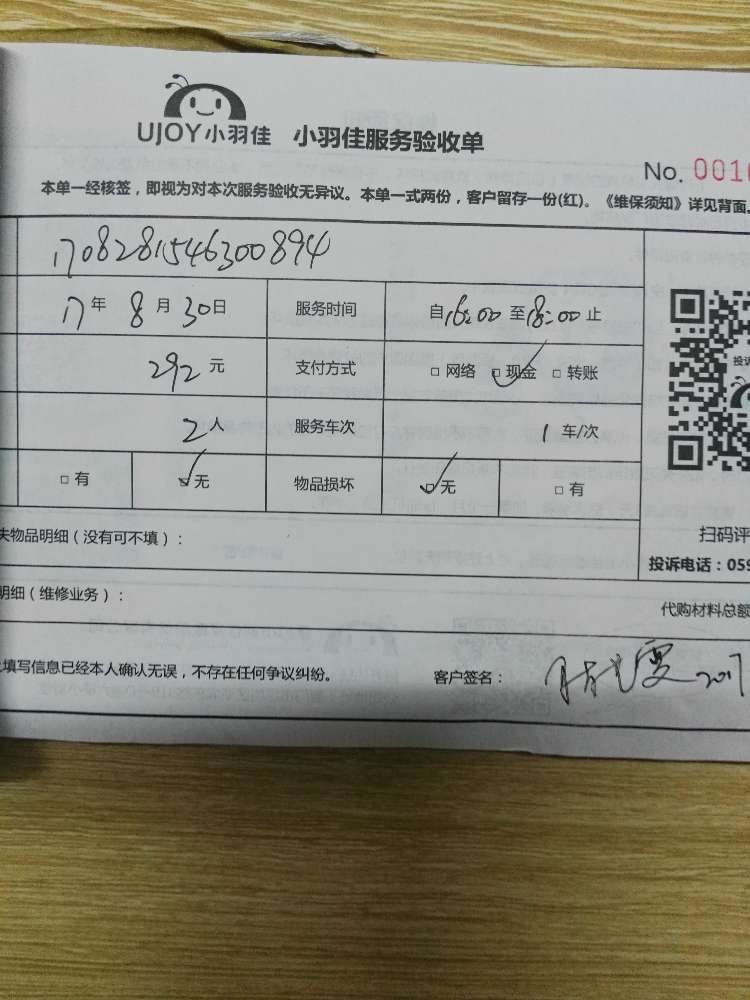 UJOY小羽佳 小羽佳服务验收单
No. 0010
本单一经核签，即视为对本次服务验收无异议。本单一式两份，客户留存一份(红)。《维保须知》详见背面。
1708281546300894
17年 8月 30日 服务时间 自16:00 至18:00 止
292 元 支付方式 □ 网络 □ 现金 □ 转账
2人 服务车次 1 车/次
□ 有 □ 无 物品损坏 □ 无 □ 有
失物品明细（没有可不填）： 扫码评
投诉电话：059
明细（维修业务）： 代购材料总额
填写信息已经本人确认无误，不存在任何争议纠纷。 客户签名： 2017